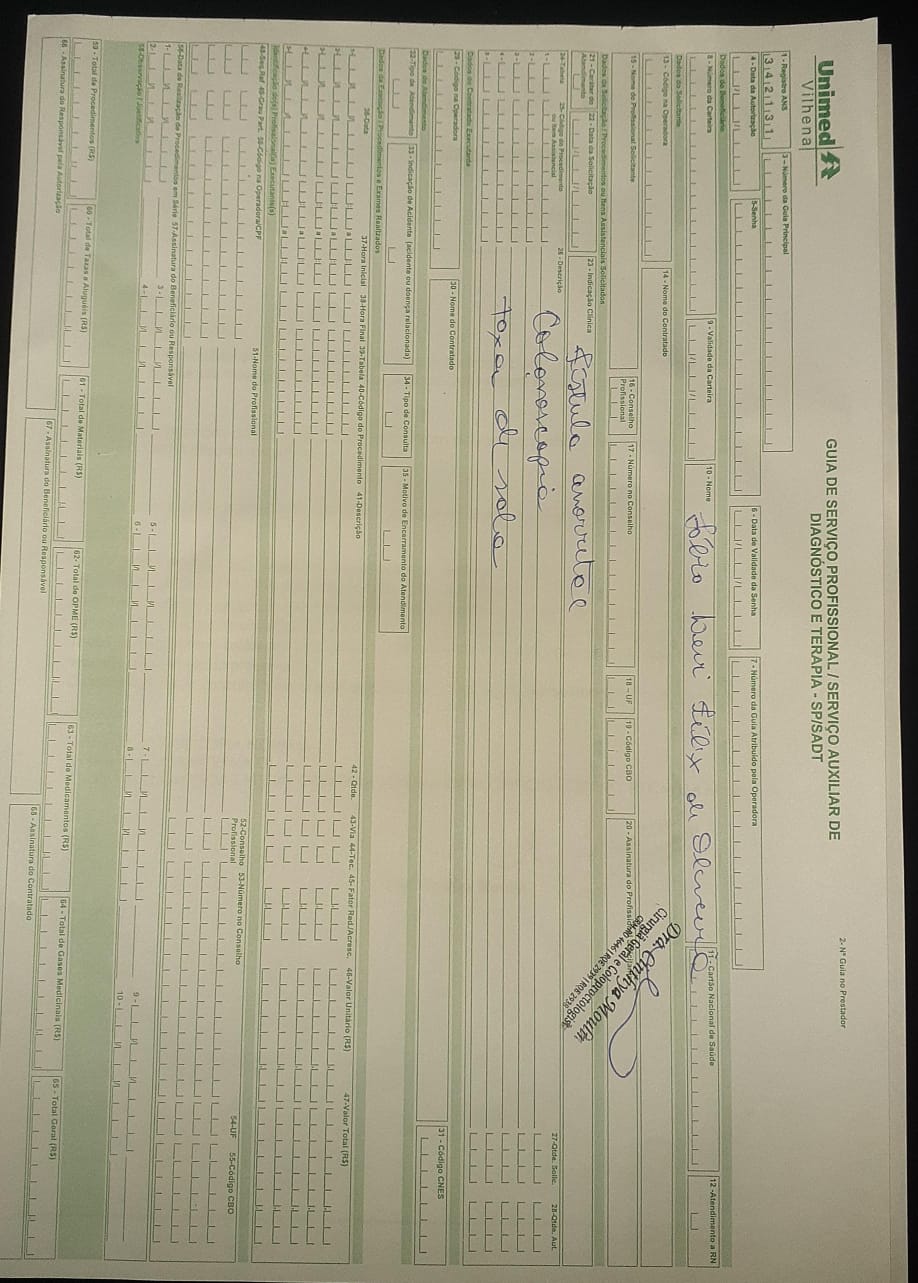 Unimed
Vilhena
GUIA DE SERVIÇO PROFISSIONAL / SERVIÇO AUXILIAR DE
DIAGNÓSTICO E TERAPIA - SP/SADT
2- Nº Guia no Prestador
1 - Registro ANS 3 - Número da Guia Principal
342131
4 - Data da Autorização 5-Senha 6 - Data de Validade da Senha 7 - Número da Guia Atribuído pela Operadora
Dados do Beneficiário
8 - Número da Carteira 9 - Validade da Carteira 10 - Nome 11 - Cartão Nacional de Saúde 12 -Atendimento a RN
Fábio Felix de Oliveira
Dados do Solicitante
13 - Código na Operadora 14 - Nome do Contratado
15 - Nome do Profissional Solicitante 16 - Conselho Profissional 17 - Número no Conselho 18 - UF 19 - Código CBO 20 - Assinatura do Profissional
Dra.
Cirurgia Geral e Coloproctologista
Dados da Solicitação / Procedimentos ou Itens Assistenciais Solicitados
21 - Caráter do Atendimento 22 - Data da Solicitação 23 - Indicação Clínica
fístula anorretal
24-Tabela 25- Código do Procedimento ou Item Assistencial 26 - Descrição 27-Qtde. Solic. 28-Qtde. Aut.
1 - Colonoscopia
2 -
3 - taxa de sala
4 -
5 -
Dados do Contratado Executante
29 - Código na Operadora 30 - Nome do Contratado 31 - Código CNES
Dados do Atendimento
32-Tipo de Atendimento 33 - Indicação de Acidente (acidente ou doença relacionada) 34 - Tipo de Consulta 35 - Motivo de Encerramento do Atendimento
Dados da Execução / Procedimentos e Exames Realizados
36-Data 37-Hora Inicial 38-Hora Final 39-Tabela 40-Código do Procedimento 41-Descrição 42 - Qtde. 43-Via 44-Tec. 45- Fator Red./Acresc. 46-Valor Unitário (R$) 47-Valor Total (R$)
1- a
2- a
3- a
4- a
5- a
Identificação do(s) Profissional(is) Executante(s)
48-Seq.Ref 49-Grau Part. 50-Código na Operadora/CPF 51-Nome do Profissional 52-Conselho Profissional 53-Número no Conselho 54-UF 55-Código CBO
56-Data de Realização de Procedimentos em Série 57-Assinatura do Beneficiário ou Responsável
1- 3 - 5 - 7 - 9 -
2- 4 - 6 - 8 - 10 -
58-Observação / Justificativa
59 - Total de Procedimentos (R$) 60 - Total de Taxas e Aluguéis (R$) 61 - Total de Materiais (R$) 62- Total de OPME (R$) 63 - Total de Medicamentos (R$) 64 - Total de Gases Medicinais (R$) 65 - Total Geral (R$)
66 - Assinatura do Responsável pela Autorização 67 - Assinatura do Beneficiário ou Responsável 68 - Assinatura do Contratado